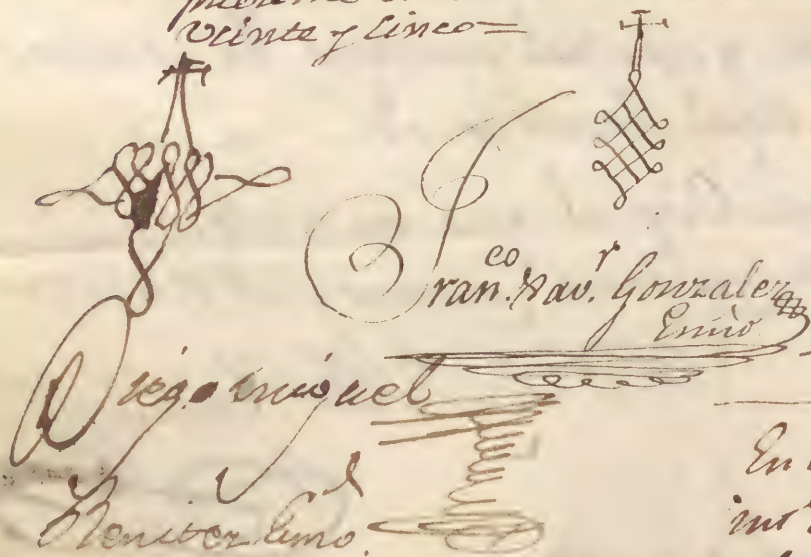 veinte y cinco=
Fran.co Xav.r Gonzalez
Diego miguel
Benitez
En